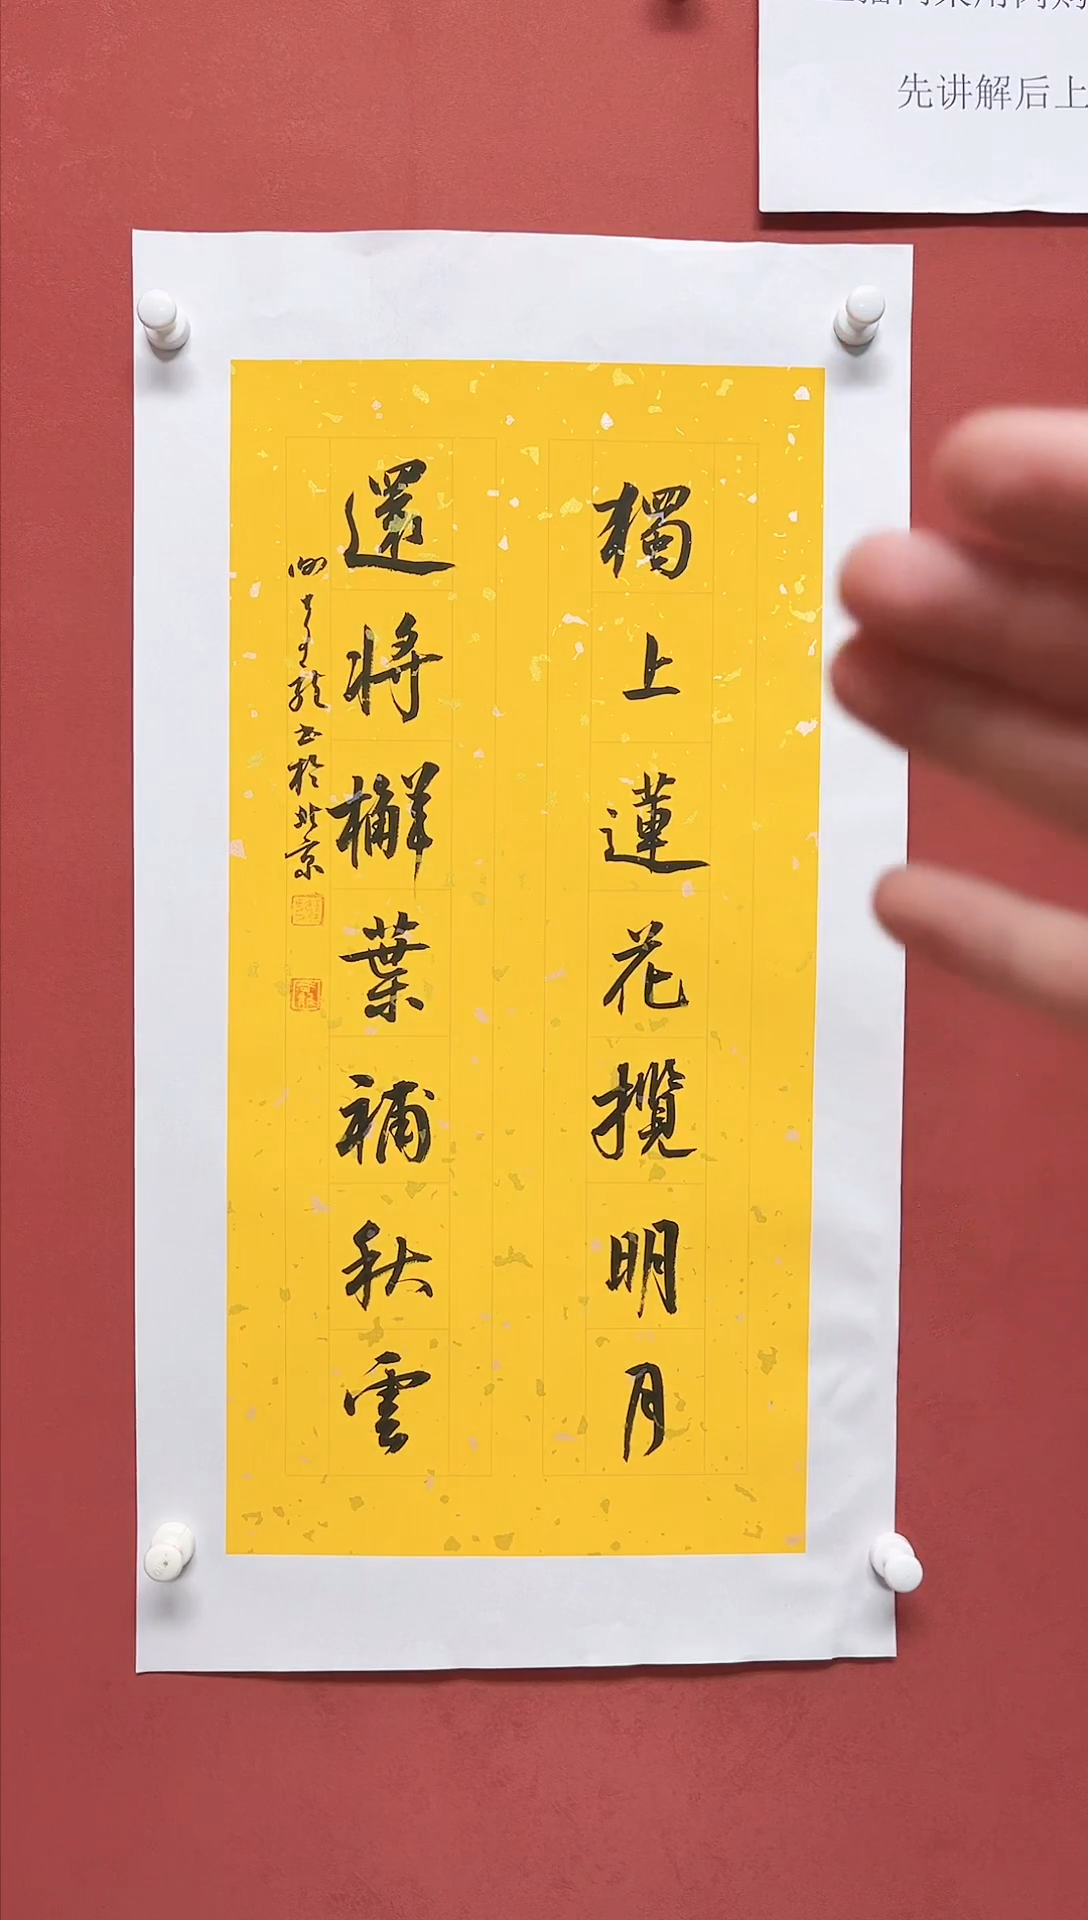 先讲解后上
獨上蓮花攬明月
還將檞葉補秋雲
书於北京